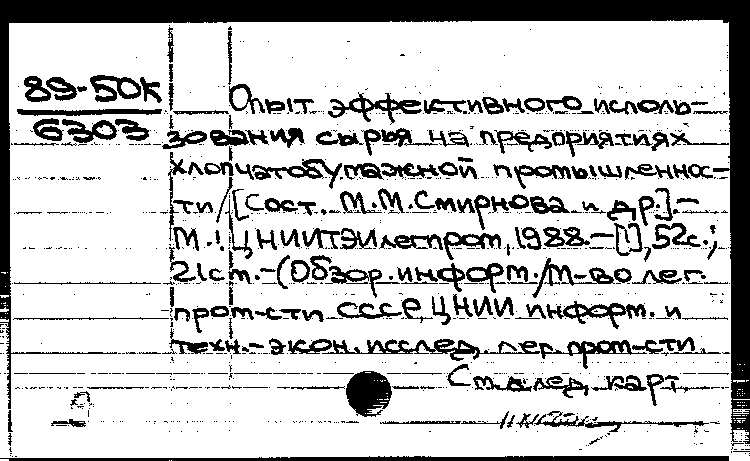 89-50К
6303
Опыт эффективного исполь-
зования сырья на предприятиях
хлопчатобумажной промышленнос-
ти / [Сост. М.М. Смирнова и др.]. -
М.: ЦНИИТЭИлегпром, 1988. - [1], 52с.;
21см. - (Обзор. информ. / М-во лег.
пром-сти СССР, ЦНИИ информ. и
техн.-экон. исслед. лег. пром-сти.
См. след. карт.